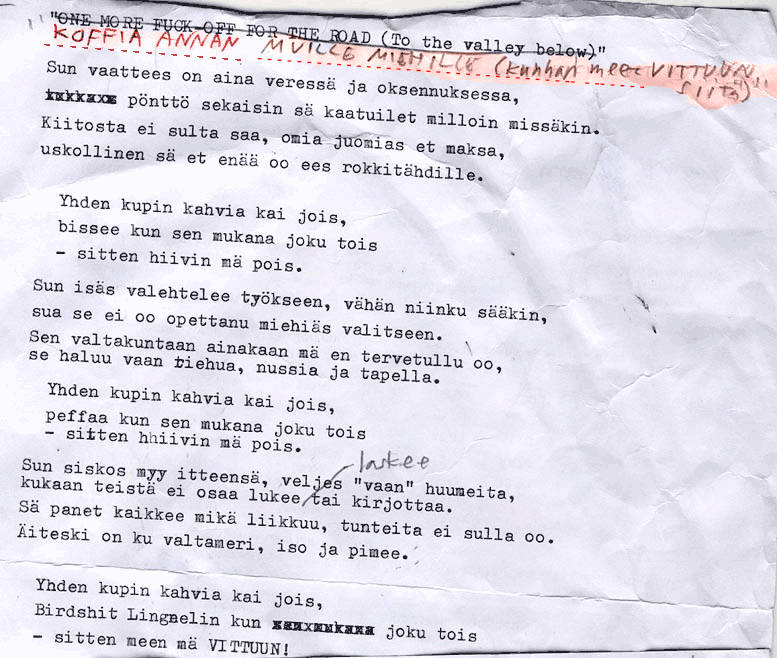 "ONE MORE FUCK OFF FOR THE ROAD (To the valley below)"
KOFFIA ANNAN MVILLE MIEHILLE (kunhan meet VITTUUN
siitä)
Sun vaattees on aina veressä ja oksennuksessa,
pönttö sekaisin sä kaatuilet milloin missäkin.
Kiitosta ei sulta saa, omia juomias et maksa,
uskollinen sä et enää oo ees rokkitähdille.
Yhden kupin kahvia kai jois,
bissee kun sen mukana joku tois
- sitten hiivin mä pois.
Sun isäs valehtelee työkseen, vähän niinku sääkin,
sua se ei oo opettanu miehiäs valitseen.
Sen valtakuntaan ainakaan mä en tervetullu oo,
se haluu vaan riehua, nussia ja tapella.
Yhden kupin kahvia kai jois,
peffaa kun sen mukana joku tois
- sitten hhiivin mä pois.
laskee
Sun siskos myy itteensä, veljes "vaan" huumeita,
kukaan teistä ei osaa lukee tai kirjottaa.
Sä panet kaikkee mikä liikkuu, tunteita ei sulla oo.
Äiteski on ku valtameri, iso ja pimee.
Yhden kupin kahvia kai jois,
Birdshit Lingnelin kun joku tois
- sitten meen mä VITTUUN!